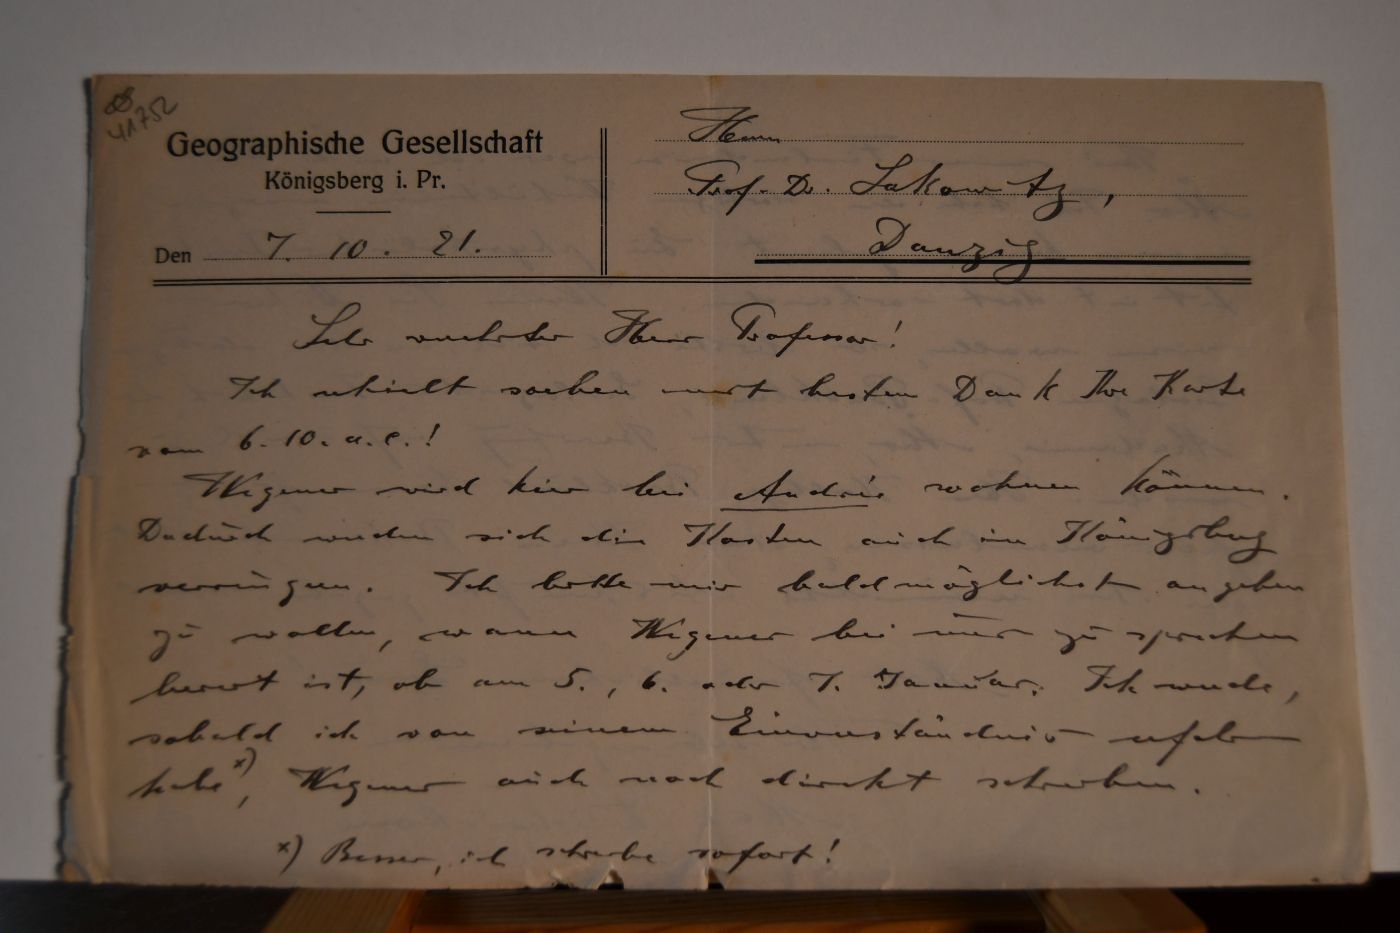 41752
Geographische Gesellschaft
Königsberg i. Pr.
Den 7. 10. 21.
Herrn
Prof. Dr. Lakowitz,
Danzig
Sehr verehrter Herr Professor!
Ich erhielt soeben mit bestem Dank Ihre Karte
vom 6. 10. a. c.!
Wegener wird hier bei Andrée wohnen können.
Dadurch würden sich die Kosten auch in Königsberg
verringern. Ich bitte mir baldmöglichst angeben
zu wollen, wann Wegener bei uns zu sprechen
bereit ist, ob am 5., 6. oder 7. Januar. Ich werde,
sobald ich von seinem Einverständnis erfahren
habe x), Wegener auch noch direkt schreiben.
x) Besser, ich schreibe sofort!